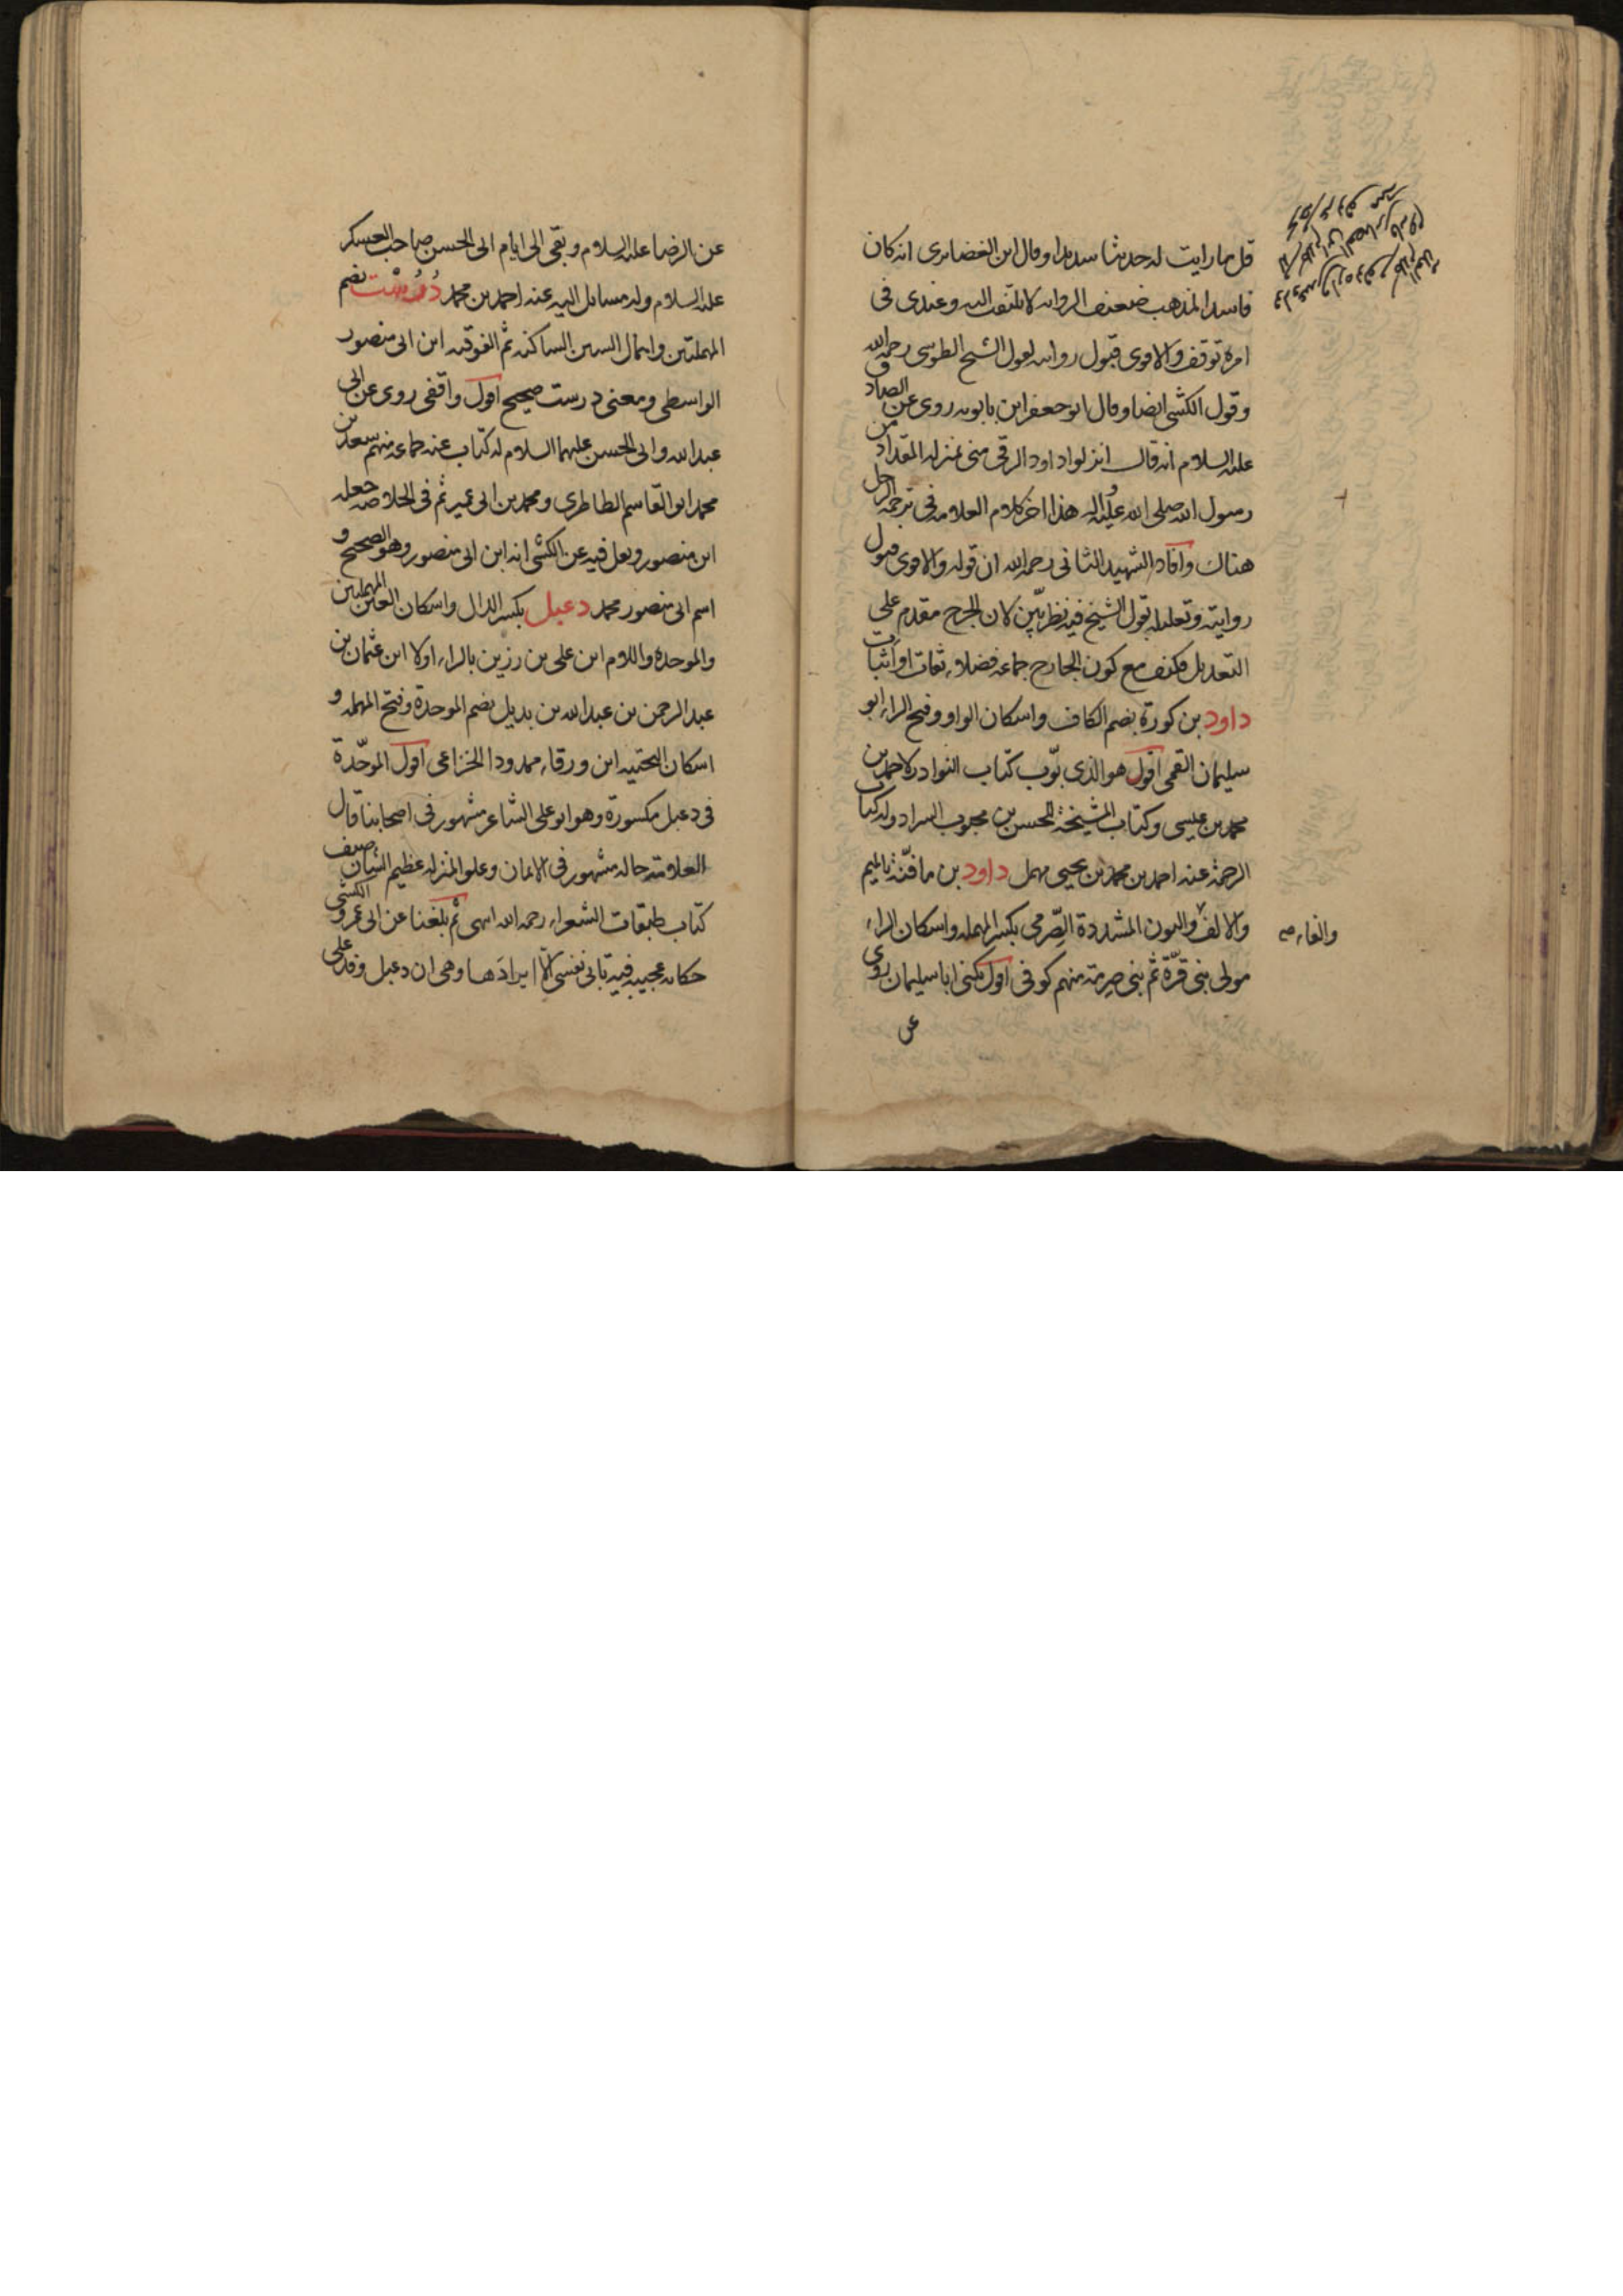 قل ما رايت له حديثا سديدا وقال ابن الغضايرى انه كان
فاسد المذهب ضعيف الرواية لا يلتفت اليه وعندى فى
امره توقف والاقوى قبول روايته لقول الشيخ الطوسى رحمه الله
وقول الكشى ايضا وقال ابو جعفر ابن بابويه روى عن الصادق
عليه السلام انه قال انزلوا داود الرقى منى بمنزلة المقداد من
رسول الله صلى الله عليه واله هذا اخر كلام العلامة فى ترجمة الرجل
هناك وافاد الشهيد الثانى رحمه الله ان قوله والاقوى قبول
روايته وتعليله بقول الشيخ فيه نظر بيّن لان الجرح مقدم على
التعديل فكيف مع كون الجارح جماعة فضلاء ثقات اثبات
داود بن كورة بضم الكاف واسكان الواو وفتح الراء ابو
سليمان القمى اقول هو الذى بوّب كتاب النوادر لاحمد بن
محمد بن عيسى وكتاب المشيخة للحسن بن محبوب السراد وله كتاب
الرحمة عنه احمد بن محمد بن يحيى مهمل داود بن مافنّة بالميم
والالف والنون المشددة الصِّرمى بكسر المهملة واسكان الراء
والفاء صح
مولى بنى قرّة ثم بنى صرمة منهم كوفى اقول يكنى ابا سليمان روى
عن
عن الرضا عليه السلام وبقى الى ايام ابى الحسن صاحب العسكر
عليه السلام وله مسايل اليه عنه احمد بن محمد دُرُسْت بضم
المهملتين واهمال السين الساكنة ثم الفوقية ابن ابى منصور
الواسطى ومعنى درست صحيح اقول واقفى روى عن ابى
عبد الله وابى الحسن عليهما السلام له كتاب عنه جماعة منهم سعد بن
محمد ابو القاسم الطاطرى ومحمد بن ابى عمير ثم فى الخلاصة جعله
ابن منصور ونقل فيه عن الكشى انه ابن ابى منصور وهو الصحيح و
اسم ابى منصور محمد دعبل بكسر الدال واسكان العين المهملتين
والموحدة واللام ابن على بن رزين بالراء اولا ابن عثمان بن
عبد الرحمن بن عبد الله بن بديل بضم الموحدة وفتح المهملة و
اسكان التحتية ابن ورقاء ممدودا الخزاعى اقول الموحّدة
فى دعبل مكسورة وهو ابو على الشاعر مشهور فى اصحابنا قال
العلامة حاله مشهور فى الايمان وعلو المنزلة عظيم الشان صنف
كتاب طبقات الشعراء رحمه الله انتهى ثم بلغنا عن ابى عمرو الكشى
حكاية عجيبة فيه تابى نفسى الّا ايرادَها وهى ان دعبل وفد على